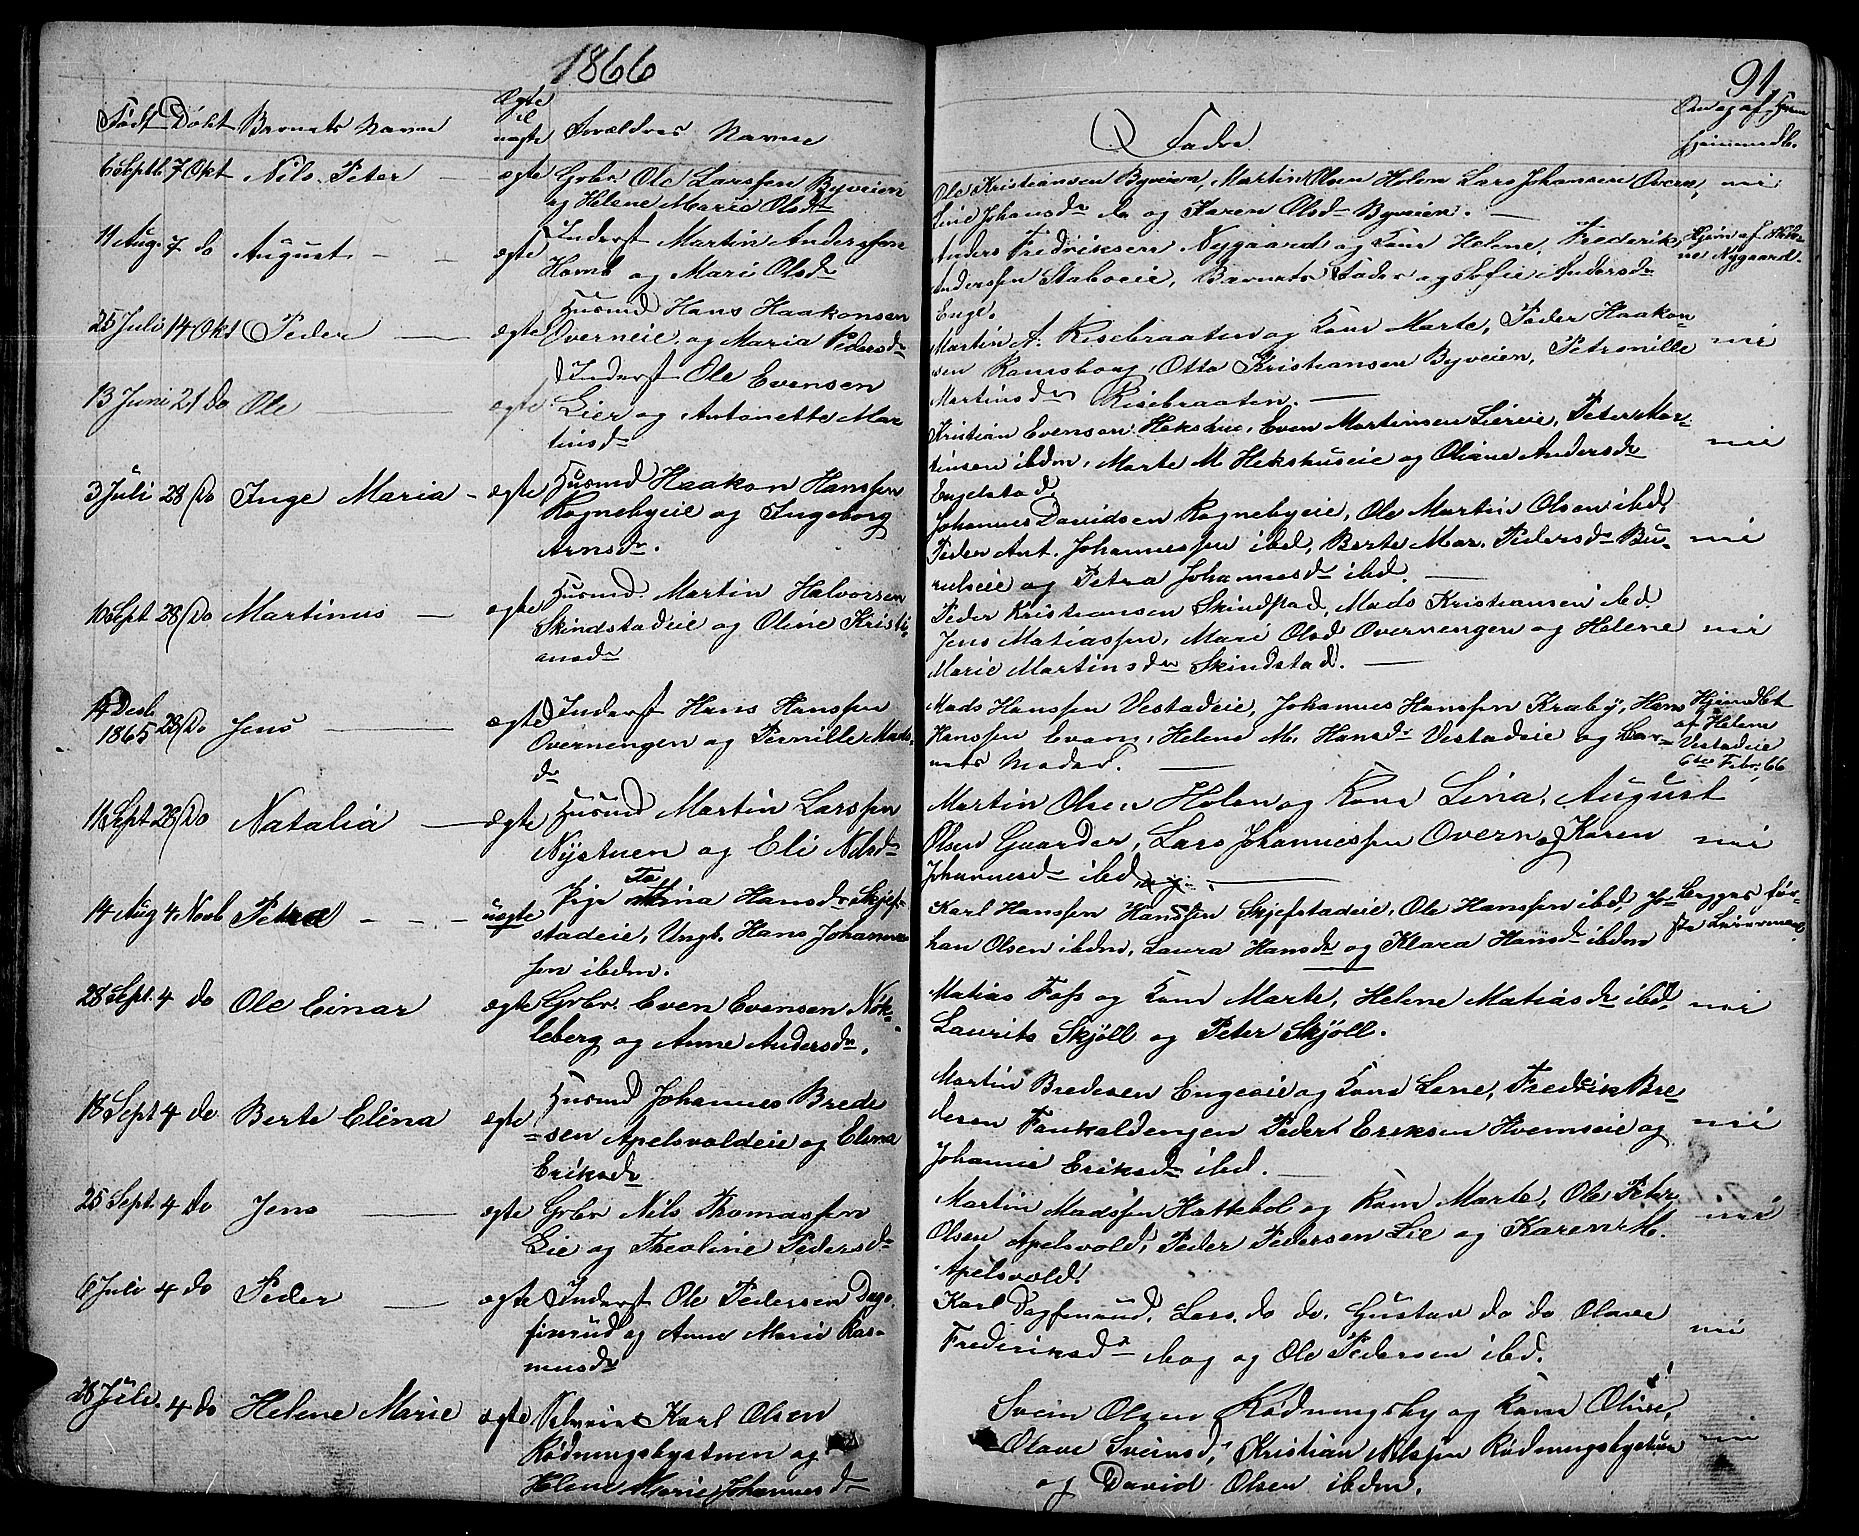 1866
91
Født Døbt Barnets Navn Ægte el. uægte Forældres Navne
Fadre
Om og af hvem hjemmedb.
6 Septb 7 Okt Nils Peter — ægte Gbr. Ole Larssen Byveien
og Helene Marie Olsdr
Ole Kristiansen Byveien, Martin Olsen Holen Lars Johansen Overn, nei
Line Johansdr do og Karen Olsdr Byveien. —
11 Aug. 7 do August - - ægte Inderst Martin Anderssen
Homb og Mari Olsdr
Anders Fredriksen Nygaard og Kone Helene, Frederik Hjem af Hele-
Anderssen Staboeie, Barnets Fader og Sofie Andersdr ne Nygaard.
Enge.
25 Juli 14 Okt Peder — ægte Husmd Hans Haakonsen
Overneie, og Maria Pedersdr
Martin A. Risebraaten og Kone Marte, Peder Haakon-
sen Ramsborg, Otto Kristiansen Byveien, Petronille nei
Martinsdr Risebraaten. —
13 Juni 21 do Ole — ægte Inderst Ole Evensen
Lier og Antonette Mar
tinsdr
Kristian Evensen Hekshus, Even Martinsen Liereie, Peter Mar-
tinsen ibdm, Marte M. Hekshuseie og Oliane Andersdr nei
Engelstad.
3 Juli 28 do Inge Maria - ægte Husmd Haakon Hanssen
Rognebyeie og Ingeborg
Arnsdr.
Johannes Davidsen Rognebyeie, Ole Martin Olsen ibd,
Peder Ant. Johannessen ibd, Berte Mar. Pedersdr Bu- nei
rulseie og Petra Johannesdr ibd. —
10 Sept 28 do Martinus — ægte Husmd Martin Halvorsen
Skindstadeie og Oline Kristi
ansdr
Peder Kristiansen Skindstad, Mads Kristiansen ibd
Jens Matiassen, Mari Olsd Overnengen og Helene nei
Marie Martinsdr Skindstad. —
14 Desb.
1865 28 do Jens — ægte Inderst Hans Hanssen
Overnengen og Pernille Mads
dr
Mads Hanssen Vestadeie, Johannes Hanssen Kraby, Hans Hjemdbt
Hanssen Evang, Helene M. Hansdr Vestadeie og Bar- af Helene
nets Moder. — Vestadeie
6te Febr. 66
11 Sept 28 do Natalia — ægte Husmd Martin Larssen
Nystuen og Eli Nilsdr
Martin Olsen Holen og Kone Lina, August
Olsen Gaarder, Lars Johannessen Overn og Karen nei
Johannesdr ibd —
14 Aug 4 Novb Petra - - - uægte Pige Tomina Hansdr Skjef-
stadeie, Ungk. Hans Johannes
sen ibdm.
Karl Hanssen Hanssen Skjefstadeie, Ole Hanssen ibd, Jo- Begges før-
han Olsen ibdm, Laura Hansdr og Klara Hansdr ibdm ste Leiermaal.
28 Sept. 4 do Ole Einar ægte Gbr. Even Evensen Nøk-
leberg og Anne Andersdr.
Matias Foss og Kone Marte, Helene Matiasdr ibd, nei
Laurits Skjøll og Peter Skjøll.
18 Sept 4 do Berte Elina ægte Husmd Johannes Brede
sen Apelsvoldeie og Elina
Eriksdr
Martin Bredesen Engeseie og Kone Lene, Fredrik Bre-
desen Fonkaldengen Peder Eriksen Hvemseie og nei
Johanne Eriksdr ibd.
25 Sept. 4 do Jens — ægte Gbr Nils Thomassen
Lie og Theoline Pedersdr
Martin Madssen Hattebol og Kone Marte, Ole Peter
Olsen Apelsvold, Peder Pedersen Lie og Karen M. nei
Apelsvold.
6 Juli 4 do Peder — ægte Inderst Ole Pedersen Dag-
finrud og Anne Marie Ras-
musdr
Karl Dagfinrud, Lars do do. Gustav do do Olave
Frederiksdr ibag og Ole Pedersen ibd. nei
28 Juli. 4 do Helene Marie ægte Selveier Karl Olsen
Rødningsbystuen og
Helene Marie Johannesdr
Svein Olsen Rødningsby og Kone Oline,
Olave Sveinsd, Kristian Nilssen Rødningsbystuen nei
og David Olsen ibdm.